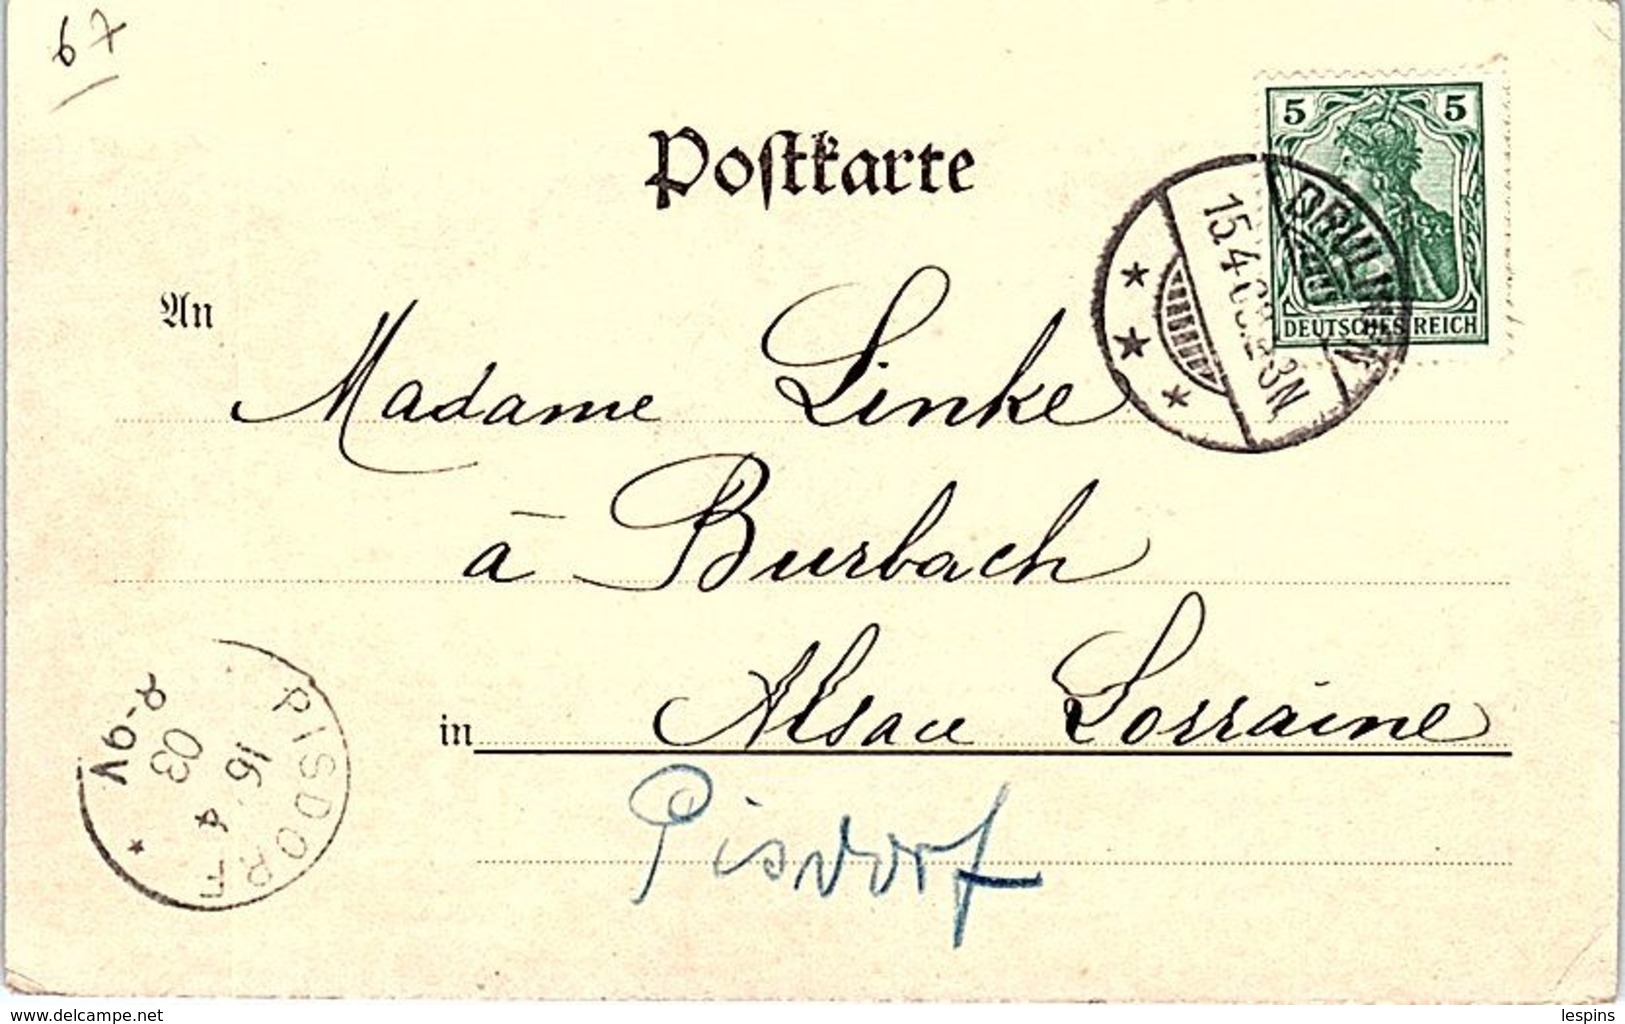 67
Postkarte
5 5
DRULINGEN
15.4.03. 3N
DEUTSCHES REICH
An
Madame Linke
à Burbach
in Alsace Lorraine
Pisdorf
PISDORF
16 4
03
www.delcampe.net
lespins